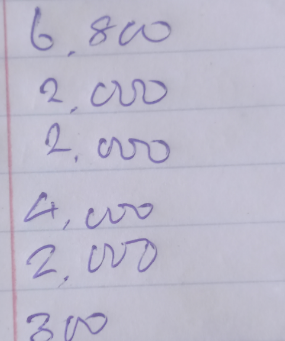 6.800
2.000
2.000
4,000
2.000
300